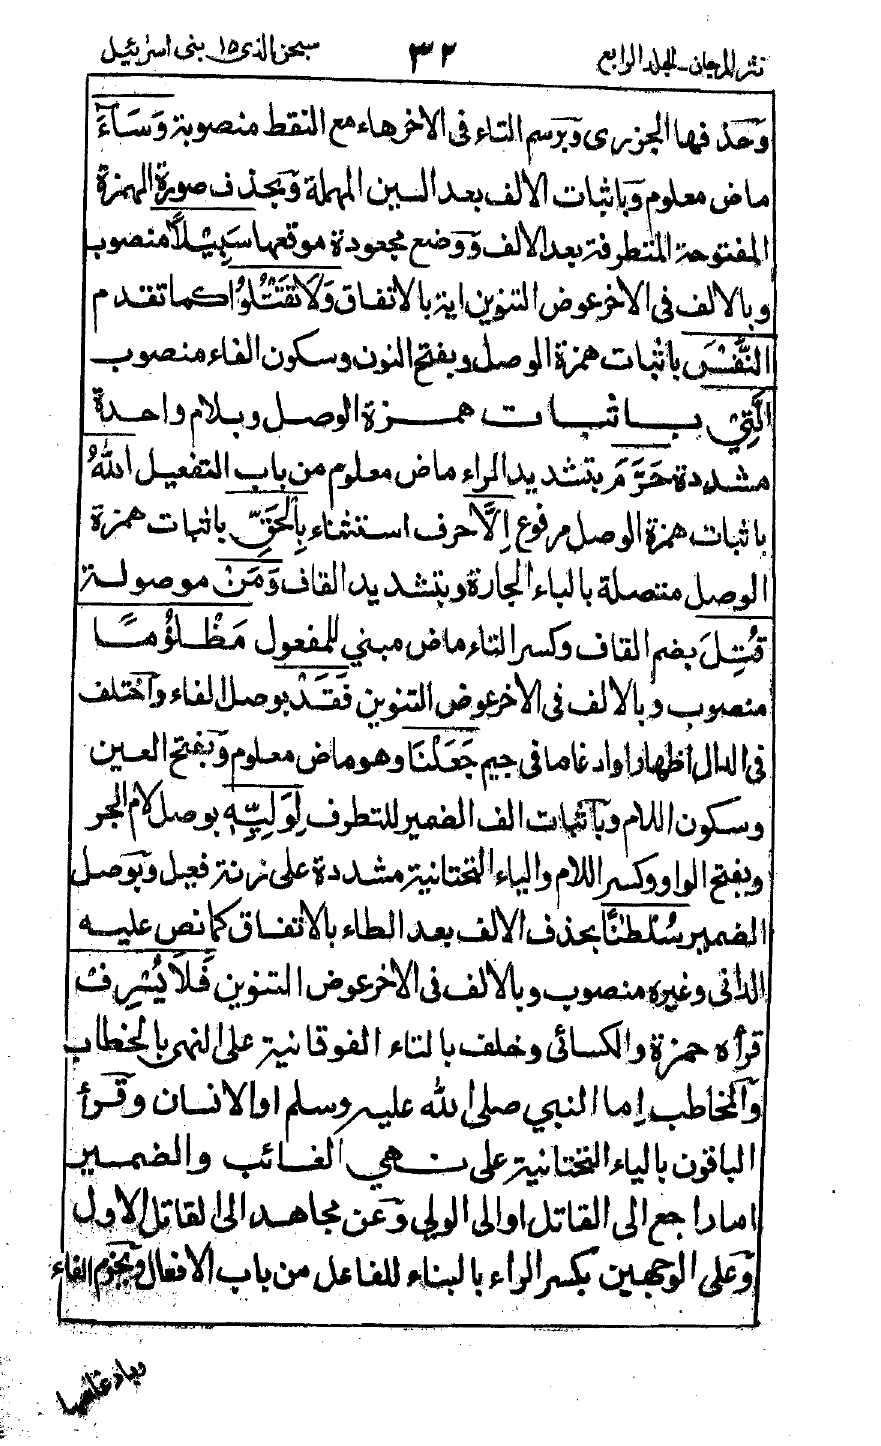 نثر المرجان - الجلد الرابع ٣٢ سبحن الذى ١٥ بنى اسرئيل
وحذفها الجزرى وبرسم التاء فى الاخر هاء مع النقط منصوبة وَسَآءَ
ماض معلوم وباثبات الالف بعد السين المهملة وبحذف صورة الهمزة
المفتوحة المتطرفة بعد الالف ووضع مجعودة موقعها سَبِيْلًا منصوب
وبالالف فى الاخر عوض التنوين اية بالاتفاق وَلَا تَقْتُلُوْا كما تقدم
النَّفْسَ باثبات همزة الوصل وبفتح النون وسكون الفاء منصوب
الَّتِيْ باثبات همزة الوصل وبلام واحدة
مشددة حَرَّمَ بتشديد الراء ماض معلوم من باب التفعيل اللهُ
باثبات همزة الوصل مرفوع اِلَّا حرف استثناء بِالْحَقِّ باثبات همزة
الوصل متصلة بالباء الجارة وبتشديد القاف وَمَنْ موصولة
قُتِلَ بضم القاف وكسر التاء ماض مبني للمفعول مَظْلُوْمًا
منصوب وبالالف فى الاخر عوض التنوين فَقَدْ بوصل الفاء واختلف
فى الدال اظهارا وادغاما فى جيم جَعَلْنَا وهو ماض معلوم وبفتح العين
وسكون اللام وباثبات الف الضمير للتطرف لِوَلِيِّهٖ بوصل لام الجر
وبفتح الواو وكسر اللام والياء التحتانية مشددة على زنة فعيل وبوصل
الضمير سُلْطٰنًا بحذف الالف بعد الطاء بالاتفاق كما نص عليه
الدانى وغيره منصوب وبالالف فى الاخر عوض التنوين فَلَا يُسْرِفْ
قرأه حمزة والكسائى وخلف بالتاء الفوقانية على النهى بالخطاب
والمخاطب اما النبي صلى الله عليه وسلم او الانسان وقرأ
الباقون بالياء التحتانية على نهي الغائب والضمير
اما راجع الى القاتل او الى الولي وعن مجاهد الى القاتل الاول
وعلى الوجهين بكسر الراء بالبناء للفاعل من باب الافعال وبجزم الفاء